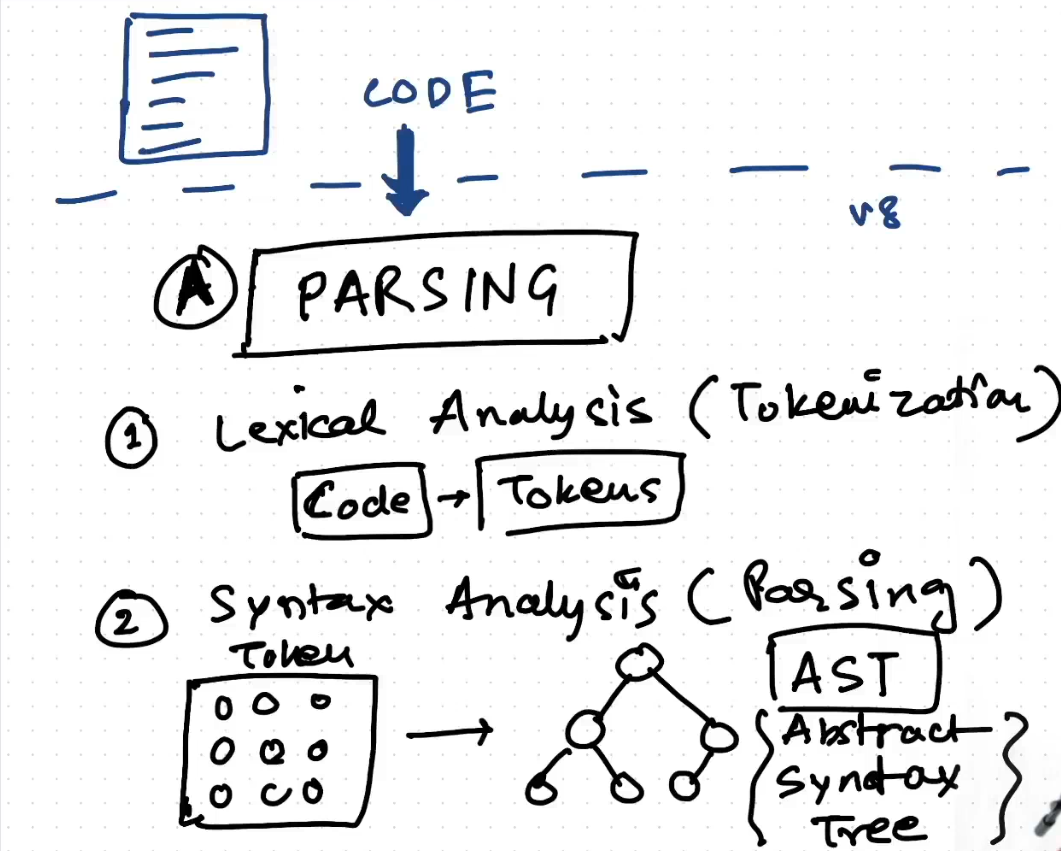 CODE
v8
A PARSING
1 Lexical Analysis (Tokenization)
Code → Tokens
2 Syntax Analysis (Parsing)
Token
AST
{Abstract
Syntax
Tree}